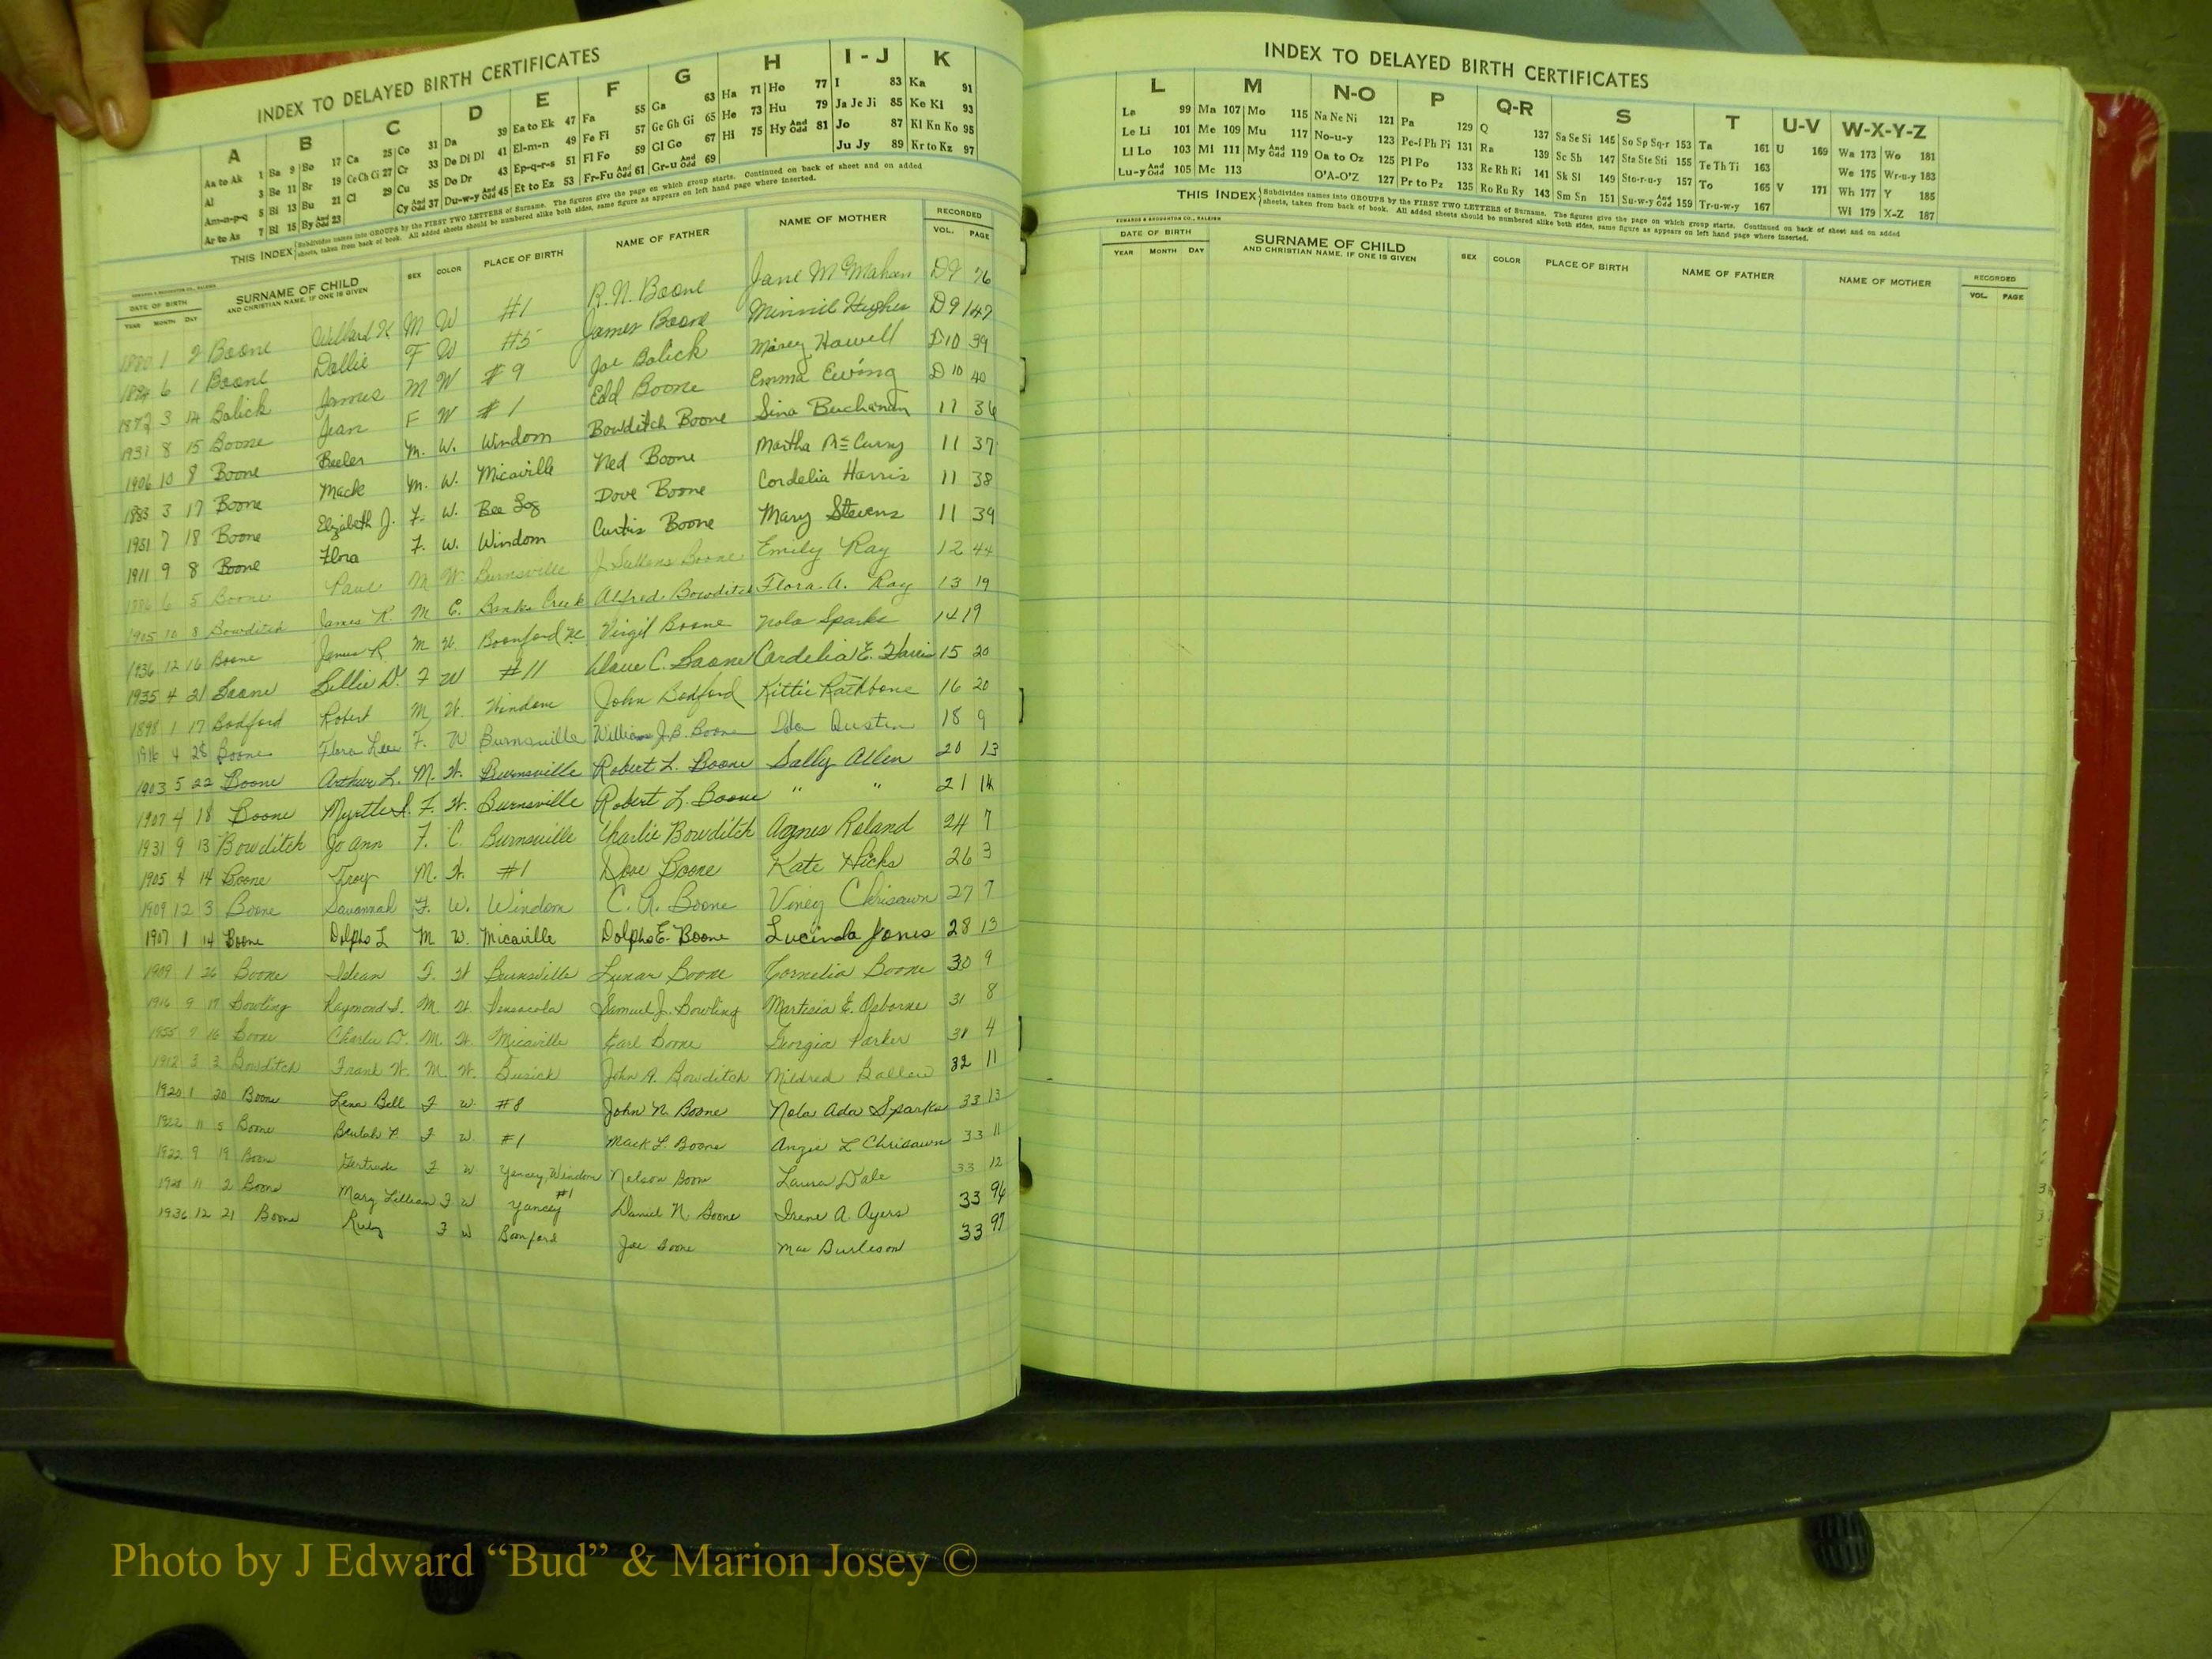 INDEX TO DELAYED BIRTH CERTIFICATES
A B C D E F G H I - J K
Aa to Ak 1 Ba 9 Bo 17 Ca 25 Co 31 Da 39 Ea to Ek 47 Fa 55 Ga 63 Ha 71 Ho 77 I 83 Ka 91
Al 3 Be 11 Br 19 Ce Ch Ci 27 Cr 33 De Di Dl 41 El-m-n 49 Fe Fi 57 Ge Gh Gi 65 He 73 Hu 79 Ja Je Ji 85 Ke Ki 93
Am-n-p-q 5 Bi 13 Bu 21 Cl 29 Cu 35 Do Dr 43 Ep-q-r-s 51 Fl Fo 59 Gl Go 67 Hi 75 Hy And Odd 81 Jo 87 Kl Kn Ko 95
Ar to Az 7 Bl 15 By And Odd 23 Cy And Odd 37 Du-w-y And Odd 45 Et to Ez 53 Fr-Fu And Odd 61 Gr-u And Odd 69 Ju Jy 89 Kr to Kz 97
THIS INDEX Subdivides names into GROUPS by the FIRST TWO LETTERS of Surname. The figures give the page on which group starts. Continued on back of sheet and on added
sheets, taken from back of book. All added sheets should be numbered alike both sides, same figure as appears on left hand page where inserted.
DATE OF BIRTH SURNAME OF CHILD SEX COLOR PLACE OF BIRTH NAME OF FATHER NAME OF MOTHER RECORDED
YEAR MONTH DAY AND CHRISTIAN NAME, IF ONE IS GIVEN VOL. PAGE
1 2 Boone M W #1 R.N. Boone Jane McMahan D9 76
6 1 Boone Dollie F W #5 James Boone Minnie Hughes D9 147
1872 3 14 Bolick James M W #9 Joe Bolick Mary Howell D10 39
1931 8 15 Boone Jean F W #1 Edd Boone Emma Ewing D10 40
1906 10 8 Boone Beeler M. W. Windom Bowditch Boone Sina Buchanan 11 36
1883 3 17 Boone Mack M. W. Micaville Ned Boone Martha McCurry 11 37
1931 7 18 Boone Elizabeth J. F. W. Bee Log Dove Boone Cordelia Harris 11 38
1911 9 8 Boone Flora F. W. Windom Curtis Boone Mary Stevens 11 39
6 5 Boone Paul M W. Burnsville Boone Emily Ray 12 44
1905 10 8 Bowditch James K. M C. Banks Creek Alfred Bowditch Flora A. Ray 13 19
1936 12 16 Boone James R M W. Boonford N.C. Virgil Boone Nola Sparks 14 19
1935 4 21 Boone Lillie D. F W #11 Dave C. Boone Cordelia E. Harris 15 20
1898 1 17 Bodford Robert M W. Windom John Bodford Kittie Rathbone 16 20
1916 4 28 Boone Flora Lee F. W Burnsville William J.B. Boone Ida Austin 18 9
1903 5 22 Boone Arthur L. M. W. Burnsville Robert L. Boone Sally Allen 20 13
1907 4 18 Boone Myrtle F. W. Burnsville Robert L. Boone " " 21 14
1931 9 13 Bowditch Jo Ann F. C. Burnsville Charlie Bowditch Agnes Roland 24 7
1905 4 14 Boone Troy M. W. #1 Dove Boone Kate Hicks 26 3
1909 12 3 Boone Savannah F. W. Windom C. R. Boone Viney Chrisawn 27 7
1907 1 14 Boone Dolpho L M W. Micaville Dolpho E. Boone Lucinda Jones 28 13
1909 1 26 Boone F. W Burnsville Boone Cornelia Boone 30 9
1916 9 17 Bowling Raymond S. M W. Pensacola Samuel J. Bowling Martisia E. Osborne 31 8
16 Boone Charlie D. M. W. Micaville Earl Boone Georgia Parker 31 4
1912 3 3 Bowditch Frank W. M W. Busick John A. Bowditch Mildred Ballew 32 11
1920 1 20 Boone Lena Bell F W #8 John N. Boone Nola Ada Sparks 33 13
1922 11 5 Boone Beulah F W #1 Mack L. Boone Angie L Chrisawn 33 11
1922 9 19 Boone Gertrude F W Yancey, Windom Nelson Boone Laura Dale 33 12
11 2 Boone Mary Lillian F W Yancey #1 Daniel N. Boone Irene A. Ayers 33 96
1936 12 21 Boone Ruby F W Boonford Joe Boone Mae Burleson 33 97
INDEX TO DELAYED BIRTH CERTIFICATES
L M N-O P Q-R S T U-V W-X-Y-Z
La 99 Ma 107 Mo 115 Na Ne Ni 121 Pa 129 Q 137 Sa Se Si 145 So Sp Sq-r 153 Ta 161 U 169 Wa 173 Wo 181
Le Li 101 Me 109 Mu 117 No-u-y 123 Pe-f Ph Pi 131 Ra 139 Sc Sh 147 Sta Ste Sti 155 Te Th Ti 163 We 175 Wr-u-y 183
Ll Lo 103 Mi 111 My And Odd 119 Oa to Oz 125 Pl Po 133 Re Rh Ri 141 Sk Sl 149 Sto-r-u-y 157 To 165 V 171 Wh 177 Y 185
Lu-y And Odd 105 Mc 113 O'A-O'Z 127 Pr to Pz 135 Ro Ru Ry 143 Sm Sn 151 Su-w-y And Odd 159 Tr-u-w-y 167 Wi 179 X-Z 187
THIS INDEX Subdivides names into GROUPS by the FIRST TWO LETTERS of Surname. The figures give the page on which group starts. Continued on back of sheet and on added
sheets, taken from back of book. All added sheets should be numbered alike both sides, same figure as appears on left hand page where inserted.
EDWARDS & BROUGHTON CO., RALEIGH
DATE OF BIRTH SURNAME OF CHILD SEX COLOR PLACE OF BIRTH NAME OF FATHER NAME OF MOTHER RECORDED
YEAR MONTH DAY AND CHRISTIAN NAME, IF ONE IS GIVEN VOL. PAGE
Photo by J Edward “Bud” & Marion Josey ©